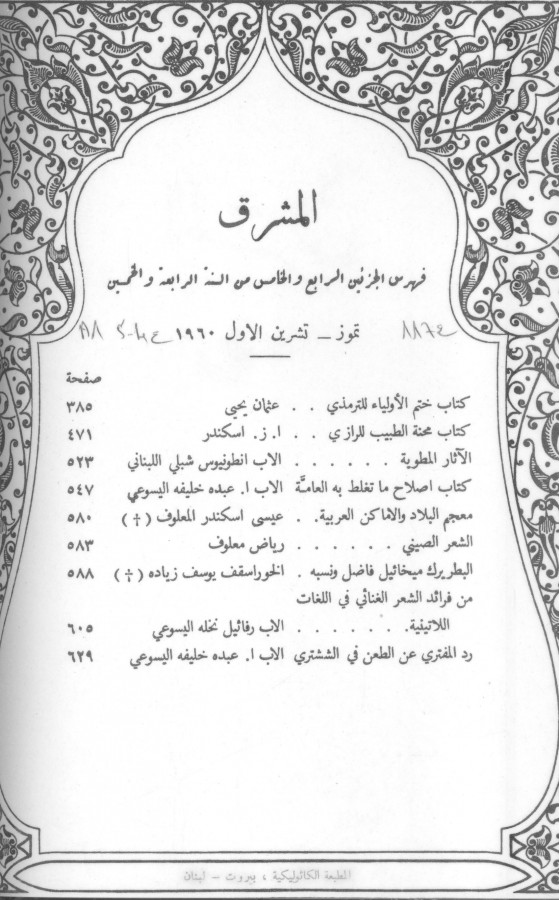 المشرق
فهرس الجزئين الرابع والخامس من السنة الرابعة والخمسين
تموز ــ تشرين الاول ١٩٦٠
صفحة
كتاب ختم الأولياء للترمذي . . عثمان يحيى ٣٨٥
كتاب محنة الطبيب للرازي . . ا. ز. اسكندر ٤٧١
الآثار المطوية . . . . . . الاب انطونيوس شبلي اللبناني ٥٢٣
كتاب اصلاح ما تغلط به العامَّة الاب ا. عبده خليفه اليسوعي ٥٤٧
معجم البلاد والاماكن العربية. . عيسى اسكندر المعلوف (†) ٥٨٠
الشعر الصيني . . . . . . رياض معلوف ٥٨٣
البطريرك ميخائيل فاضل ونسبه . الخوراسقف يوسف زياده (†) ٥٨٨
من فرائد الشعر الغنائي في اللغات
اللاتينية. . . . . . . الاب رفائيل نخله اليسوعي ٦٠٥
رد المفتري عن الطعن في الششتري الاب ا. عبده خليفه اليسوعي ٦٢٩
المطبعة الكاثوليكية ، بيروت – لبنان